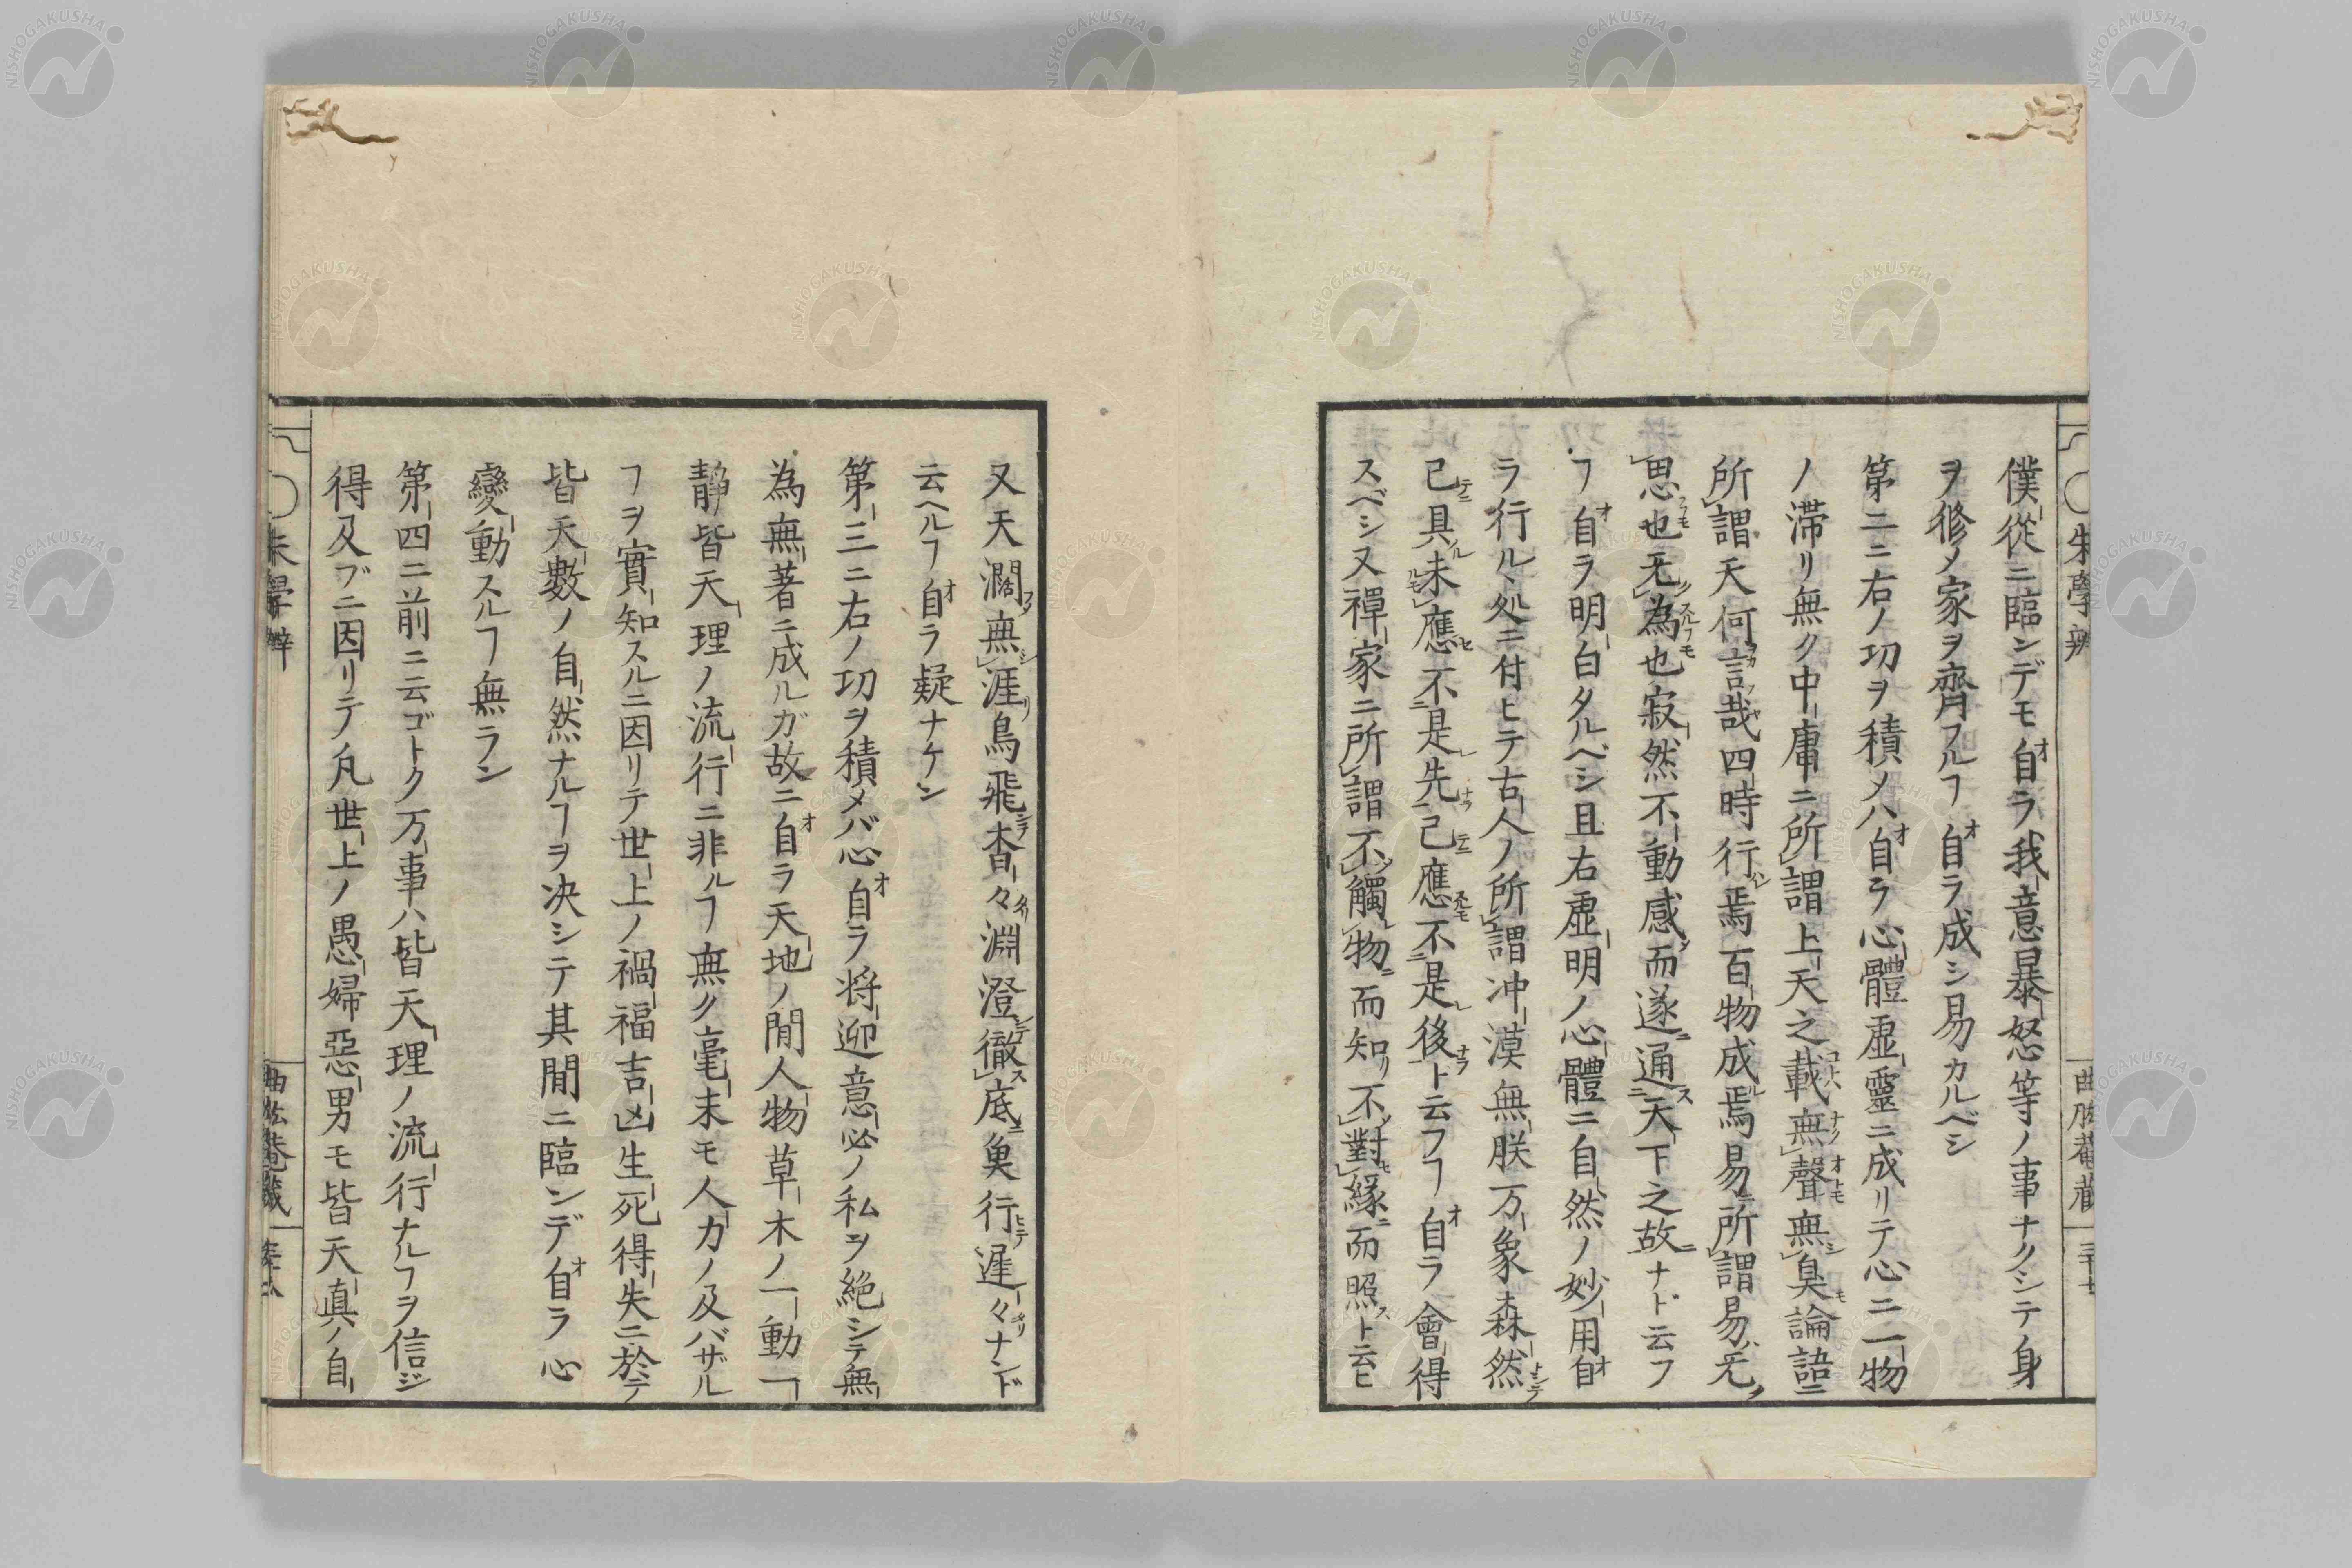 僕從ニ臨ンデモ自ラ我意暴怒等ノ事ナクシテ身
ヲ修メ家ヲ齊フルヿ自ラ成シ易カルベシ
第二ニ右ノ功ヲ積メハ自ラ心體虚靈ニ成リテ心ニ一物
ノ滞リ無ク中庸ニ所謂上天之載無聲無臭論語ニ
所謂天何言哉四時行焉百物成焉易所謂易无
思也无為也寂然不動感而遂通天下之故ナド云フ
ヿ自ラ明白タルベシ且右虚明ノ心體ニ自然ノ妙用自
ラ行ルヽ処ニ付ヒテ古人ノ所謂冲漠無朕万象森然
已具未應不是先已應不是後ト云フヿ自ラ會得
スベシ又禪家ニ所謂不觸物而知不對緣而照ト云ヒ
又天濶無涯鳥飛杳々淵澄徹底魚行遲々ナンド
云ヘルヿ自ラ疑ナケン
第三ニ右ノ功ヲ積メバ心自ラ将迎意必ノ私ヲ絶シテ無
為無著ニ成ルガ故ニ自ラ天地ノ間人物草木ノ一動一
静皆天理ノ流行ニ非ルヿ無ク毫末モ人力ノ及バザル
ヿヲ實知スルニ因リテ世上ノ禍福吉凶生死得失ニ於テ
皆天數ノ自然ナルヿヲ决シテ其間ニ臨ンデ自ラ心
變動スルヿ無ラン
第四ニ前ニ云ゴトク万事ハ皆天理ノ流行ナルヿヲ信ジ
得及ブニ因リテ凡世上ノ愚婦惡男モ皆天真ノ自
朱學辨
曲肱菴藏
NISHOGAKUSHA